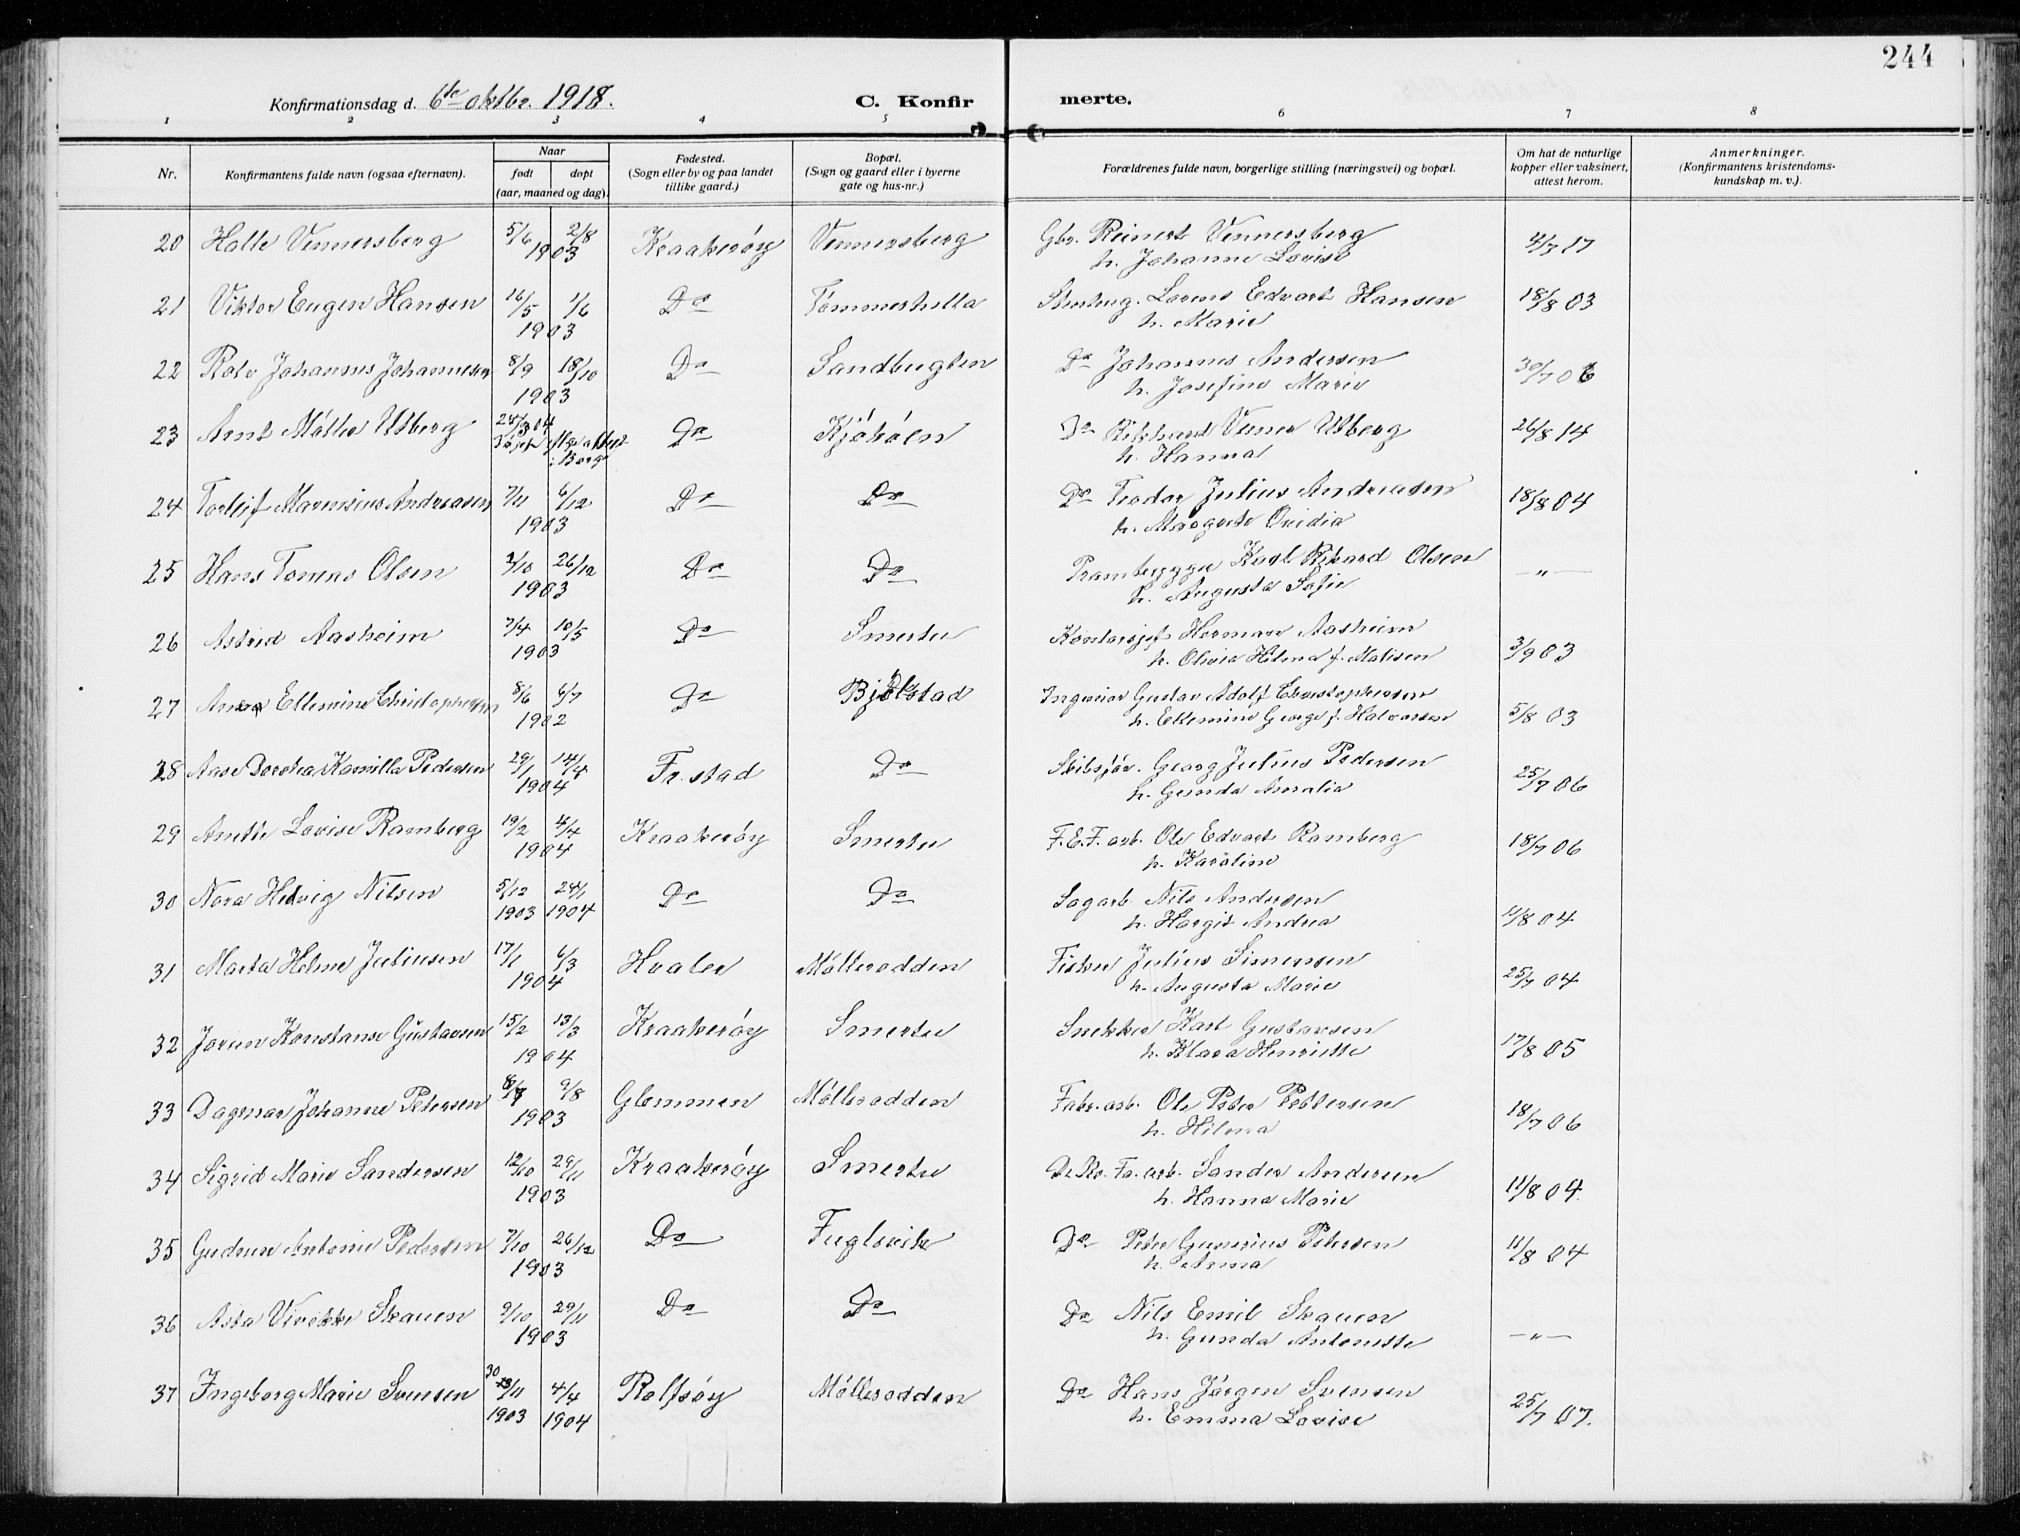 244
Konfirmationsdag d. 6te oktbr. 1918. C. Konfirmerte.
1 2 3 4 5 6 7 8
Nr. Konfirmantens fulde navn (ogsaa efternavn). Naar født døpt (aar, maaned og dag). Fødested. (Sogn eller by og paa landet tillike gaard.) Bopæl. (Sogn og gaard eller i byerne gate og hus-nr.) Forældrenes fulde navn, borgerlige stilling (næringsvei) og bopæl. Om hat de naturlige kopper eller vaksinert, attest herom. Anmerkninger. (Konfirmantens kristendomskundskap m. v.).
20 Halle Vennersberg 5/6 2/8 1903 Kraakerøy Vennersberg Gbr. Reinert Vennersberg 4/7 17
h. Johanne Lovise
21 Viktor Eugen Hansen 16/5 1/6 1903 Do Tømmerhella Stenhug. Lorens Edvart Hansen 18/8 03
h. Marie
22 Rolv Johannes Johannesen 8/9 18/10 1903 Do Sandbugten Do Johannes Andersen 30/7 06
h. Josefine Marie
23 Arnt Møller Utberg 24/3 04 Borge Do Kjøhøln Do Rikhard Verner Utberg 26/8 14
h. Hanna
24 Torleif Marensius Andreasen 7/11 6/12 1903 Do Do Do Teodor Julius Andreasen 18/8 04
h. Margrete Ovidia
25 Hans Tomas Olsen 2/10 26/12 1903 Do Do Prambygger Karl Rikard Olsen —"—
h. Augusta Sofie
26 Astrid Aasheim 7/4 10/5 1903 Do Smertu Kontorsjef Herman Aasheim 3/9 03
h. Olivia Hilma f. Matisen
27 Anna Ellemine Christophersen 8/6 6/7 1902 Do Bjølstad Ingeniør Gustav Adolf Christophersen 5/8 03
h. Ellemine George f. Halvorsen
28 Aase Dorthea Kamilla Pedersen 29/1 14/4 1904 Fr.stad Do Skibsfør. Georg Julius Pedersen 25/7 06
h. Gunda Amalia
29 Anette Lovise Ramberg 19/2 4/4 1904 Kraakerøy Smertu F.E.F. arb. Ole Edvart Ramberg 18/7 06
h. Karoline
30 Nora Hedvig Nilsen 5/12 1903 24/1 1904 Do Do Sagarb. Nils Andersen 11/8 04
h. Hargit Andrea
31 Marta Helene Juliusen 17/1 6/3 1904 Hvaler Møllerodden Fisker Julius Simensen 25/7 04
h. Augusta Marie
32 Jorun Konstanse Gustavsen 15/2 13/3 1904 Kraakerøy Smertu Snekker Karl Gustavsen 17/8 05
h. Klara Henriette
33 Dagmar Johanne Petersen 8/7 9/8 1903 Glemmen Møllerodden Fabr.arb. Ole Peter Pettersen 18/7 06
h. Hilma
34 Sigrid Marie Sandersen 12/10 29/11 1903 Kraakerøy Smertu Fa. arb. Sander Andersen 11/8 04.
h. Hanna Marie
35 Gudrun Antonie Pedersen 7/10 26/12 1903 Do Fuglevik Do Peter Gunerius Petersen 11/8 04
h. Anna
36 Asta Vivikke Skauen 9/10 29/11 1903 Do Do Do Nils Emil Skauen —"—
h. Gunda Antonette
37 Ingeborg Marie Svensen 30/11 1903 4/4 1904 Rolfsøy Møllerodden Do Hans Jørgen Svensen 25/7 07.
h. Emma Lovise